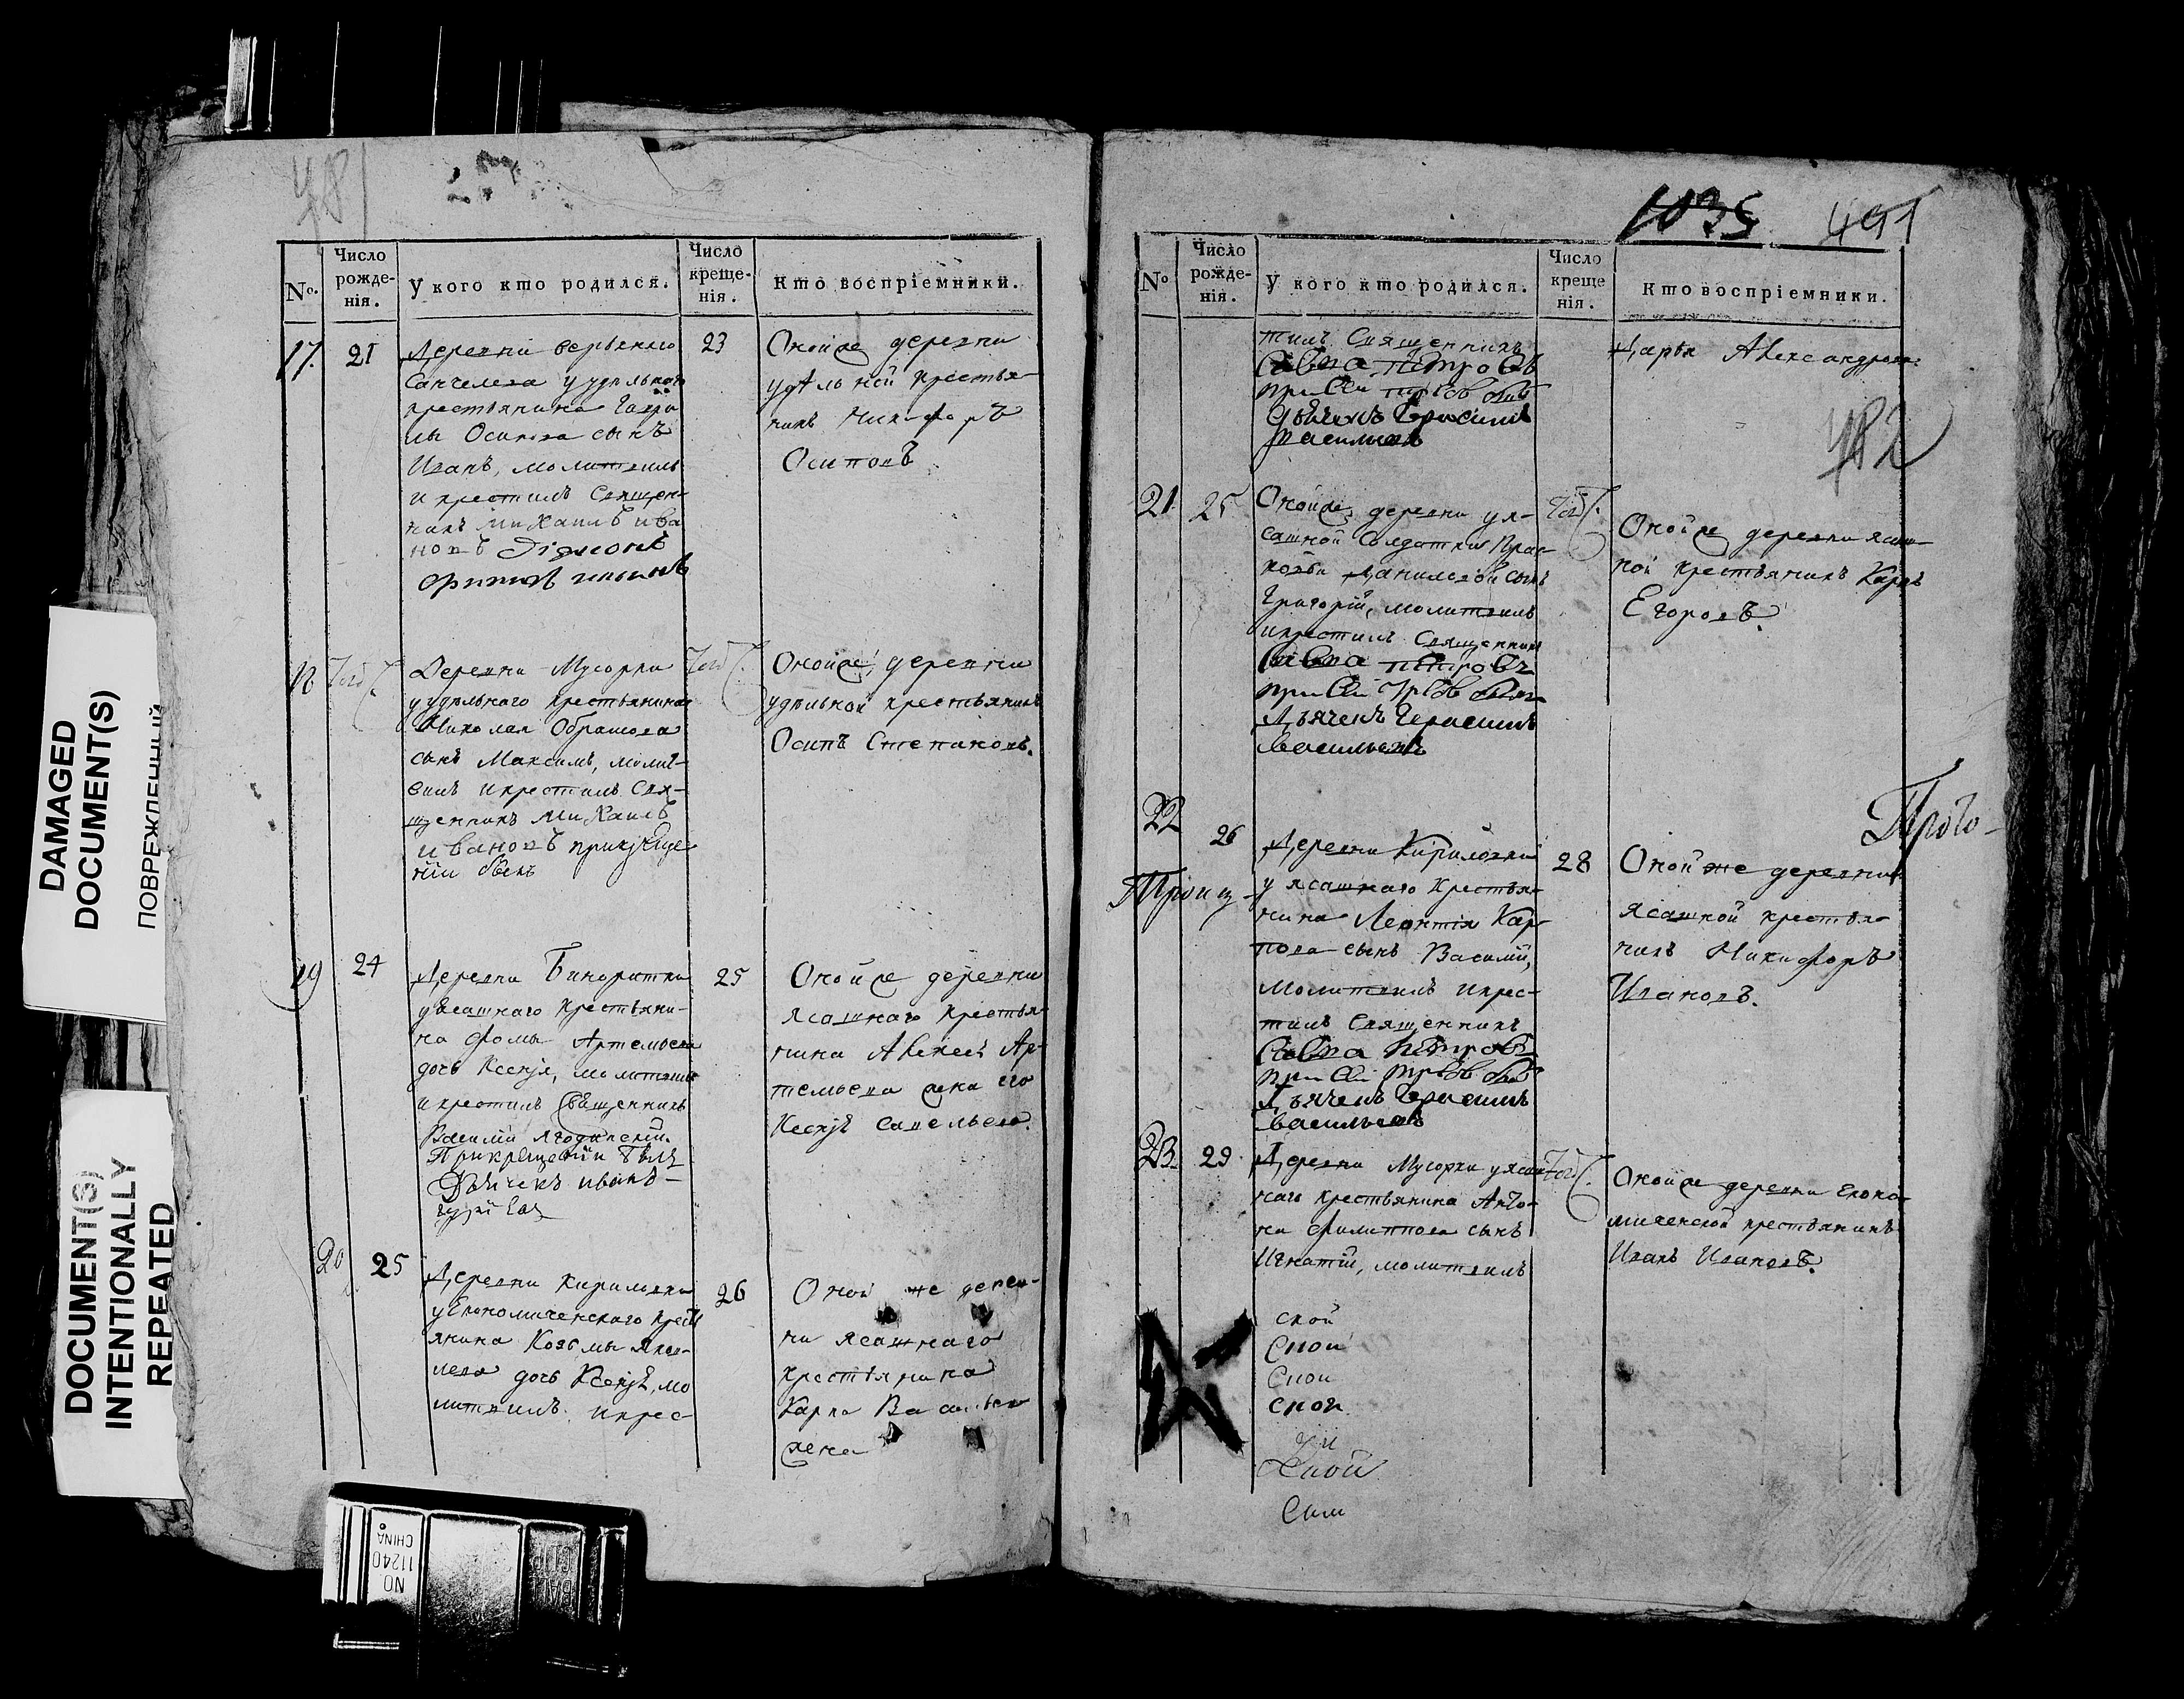 481
No.
Число рожде-нія.
У кого кто родился.
Число креще-нія.
Кто воспріемники.
17.
21
Деревни верьхняго
Санчелева у удѣльнаго
крестьянина Гаври
лы Осипова сынъ
Иванъ, молитвилъ
и крестилъ Священ-
никъ Михаилъ ива
новъ
23
Оной же деревни
удѣльной крестья
нинъ Никифоръ
Осиповъ
18
Тогож
Деревни Мусорки
у удѣльнаго крестьянина
Николая Обрамова
сынъ Максимъ, молит-
вилъ и крестилъ Свя-
щенникъ Михаилъ
ивановъ при креще
ніи былъ
Тогож
Оной же деревни
удѣльной крестьянинъ
Осипъ Степановъ.
19
24
Деревни
у ясашнаго крестьяни-
на Фомы Артемьева
дочь Ксенія, молитвилъ
и крестилъ Священникъ
Василій Ягодинскій.
При крещеніи былъ
Дьячекъ иванъ
25
Оной же деревни
ясашнаго крестья
нина Алексея Ар-
темьева жена его
Ксенія Савельева.
20
25
Деревни Кириловки
у Економическаго крестъ
янина Козьмы Яков-
лева дочь Ксенія, мо
литвилъ и крес-
26
Оной же дерев-
ни ясашнаго
крестьянина
Карпа Васильева
жена
1035
491
No
Число рожде-нія.
У кого кто родился.
Число креще нія.
Кто воспріемники.
тилъ Священникъ
Савва петровъ
при сей
Дьячекъ Герасимъ
Васильевъ
Дарья Александрова
482
21.
25
Оной же деревни уя-
сашной Солдатки Прас-
ковьи Даниловой сынъ
Григорій, молитвилъ
и крестилъ Священникъ
Савва петровъ
при сей
Дьячекъ Герасимъ
васильевъ
Тогож
Оной же деревни ясаш-
ной крестьянинъ Карпъ
Егоровъ.
22
26
Деревни Кириловки
у ясашнаго крестья-
нина Леонтія Кар
пова сынъ Василій,
молитвилъ и крес-
тилъ Священникъ
Савва Петровъ
при сей
Дьячекъ Герасимъ
васильевъ
28
Оной же деревни
ясашной крестья-
нинъ Никифоръ
Ивановъ.
23.
29.
Деревни Мусорки у ясаш
наго крестьянина Анто-
на Филиппова сынъ
Игнатій, молитвилъ
Тогож
Оной же деревни Еконо-
мической крестьянинъ
Иванъ Ивановъ.
ской
DAMAGED
DOCUMENT(S)
ПОВРЕЖДЕННЫЙ
DOCUMENT(S)
INTENTIONALLY
REPEATED
NO.
11240
CHINA